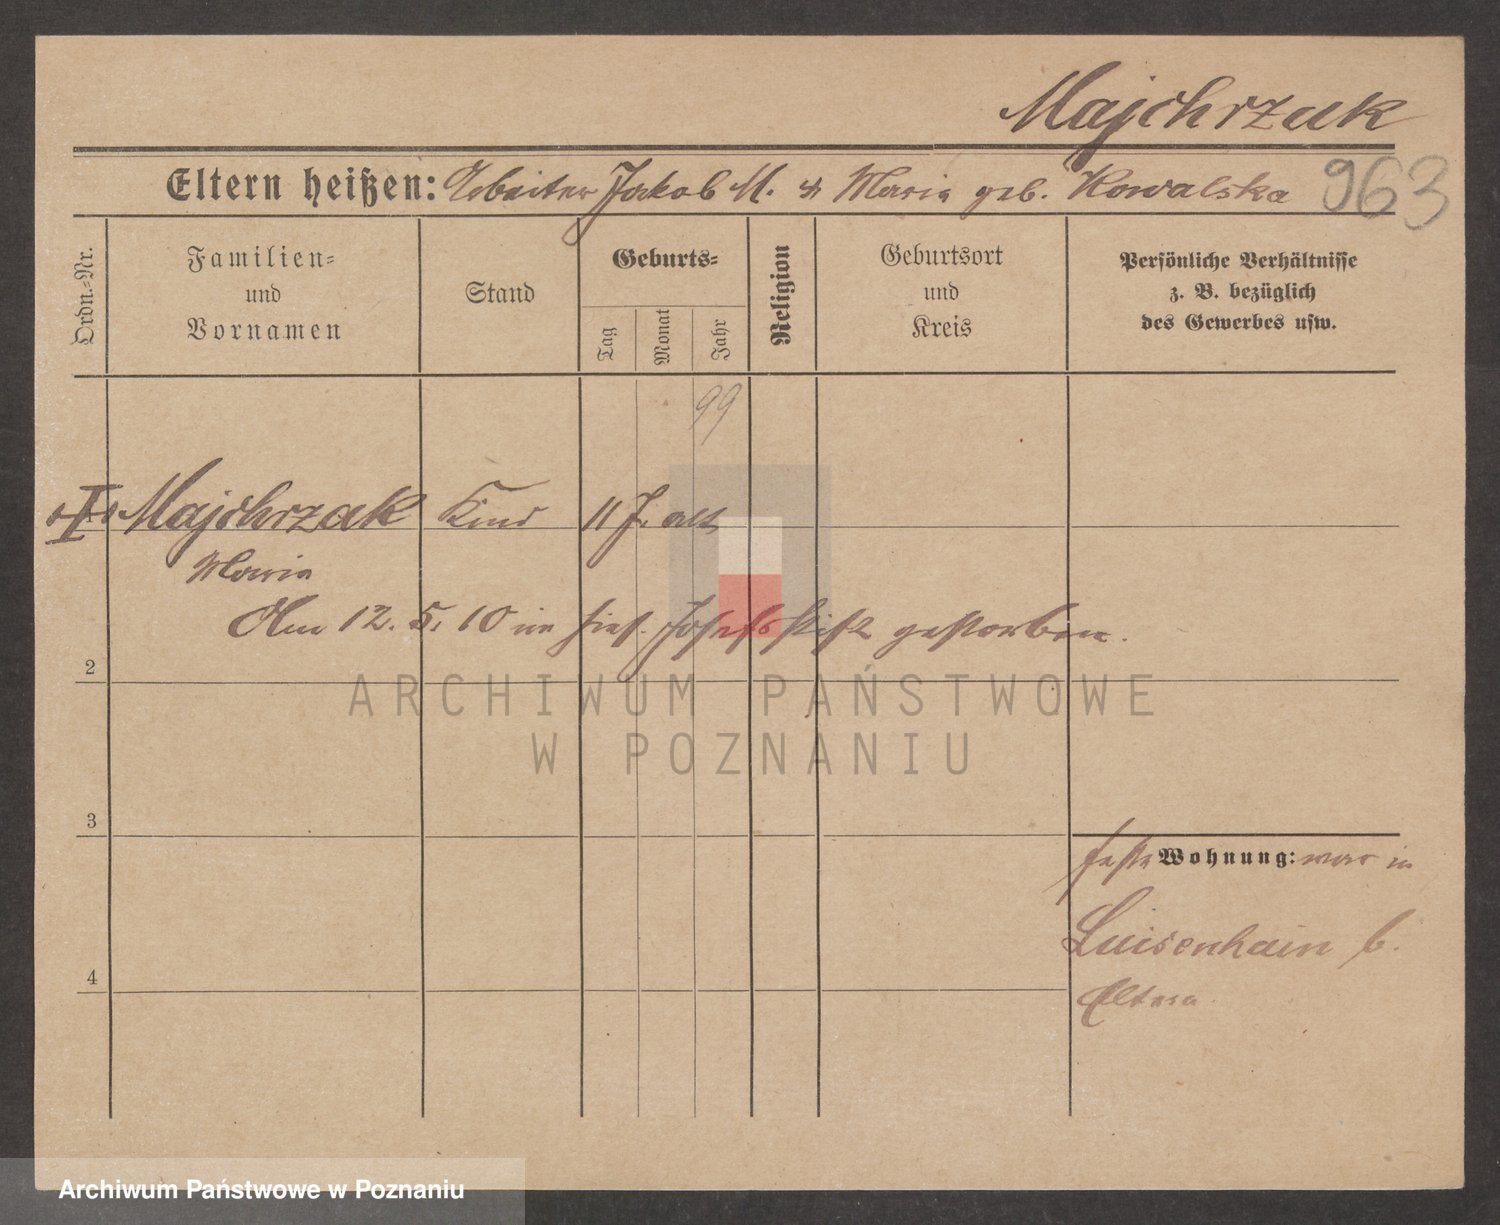 Majchrzak
Eltern heißen: Arbeiter Jakob M. u Maria geb. Kowalska 963
Ordn.-Nr.
Familien-
und
Vornamen
Stand
Geburts-
Tag
Monat
Jahr
Religion
Geburtsort
und
Kreis
Persönliche Verhältnisse
z. B. bezüglich
des Gewerbes usw.
99
I Majchrzak Kind 11 J. alt
Maria
Am 12. 5. 10 im hies. Josefsstift gestorben.
2
ARCHIWUM PAŃSTWOWE
W POZNANIU
3
feste Wohnung: war in
Luisenhain b.
4
Eltern
Archiwum Państwowe w Poznaniu